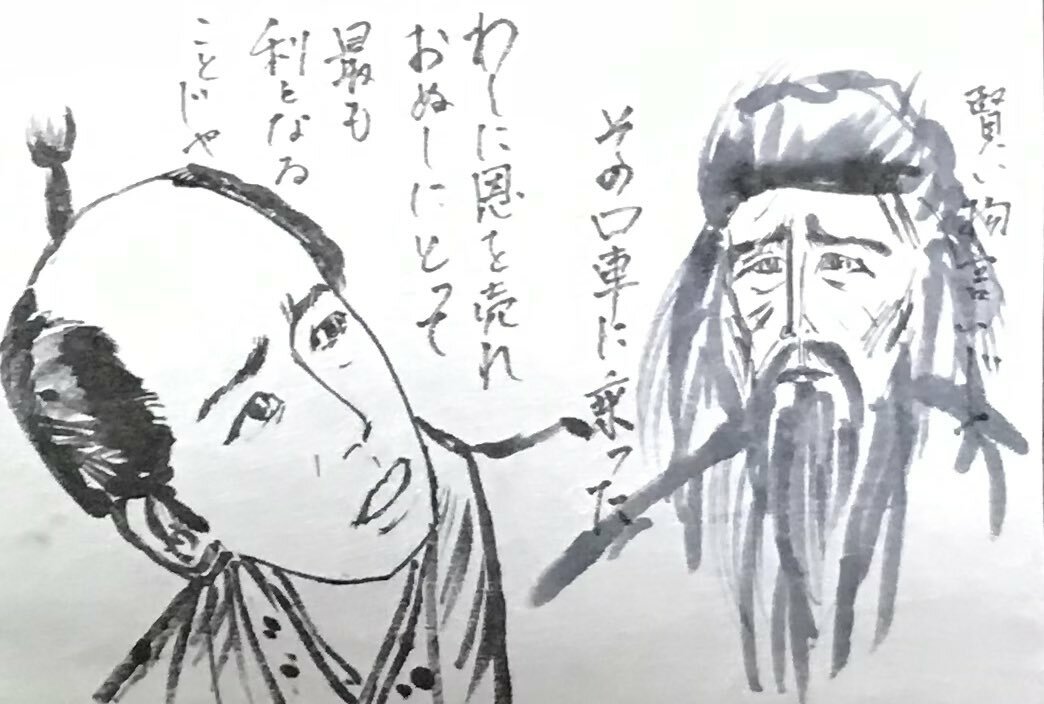 賢い物言いじゃ
その口車に乗った
わしに恩を売れ
おぬしにとって
最も
利となる
ことじゃ